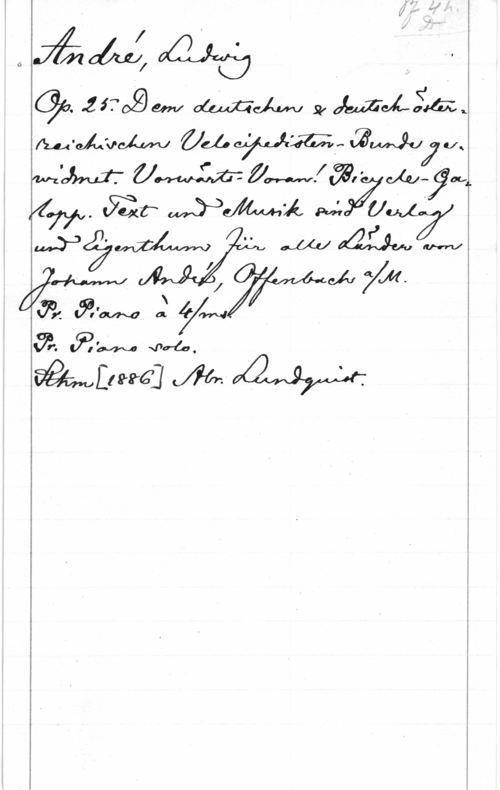 André, Ludwig
Op. 25. Dem deutschen & deutsch-öster-
reichischen Velocipedisten-Bunde ge-
widmet. Vorwärts-Voran! Bicycle-Ga-
lopp. Text und Musik sind Verlag
und Eigenthum für alle Länder von
Johann André, Offenbach a/M.
Pr. Piano à 4/ms
Pr. Piano solo.
Sthm [1886] Abr. Lundquist.